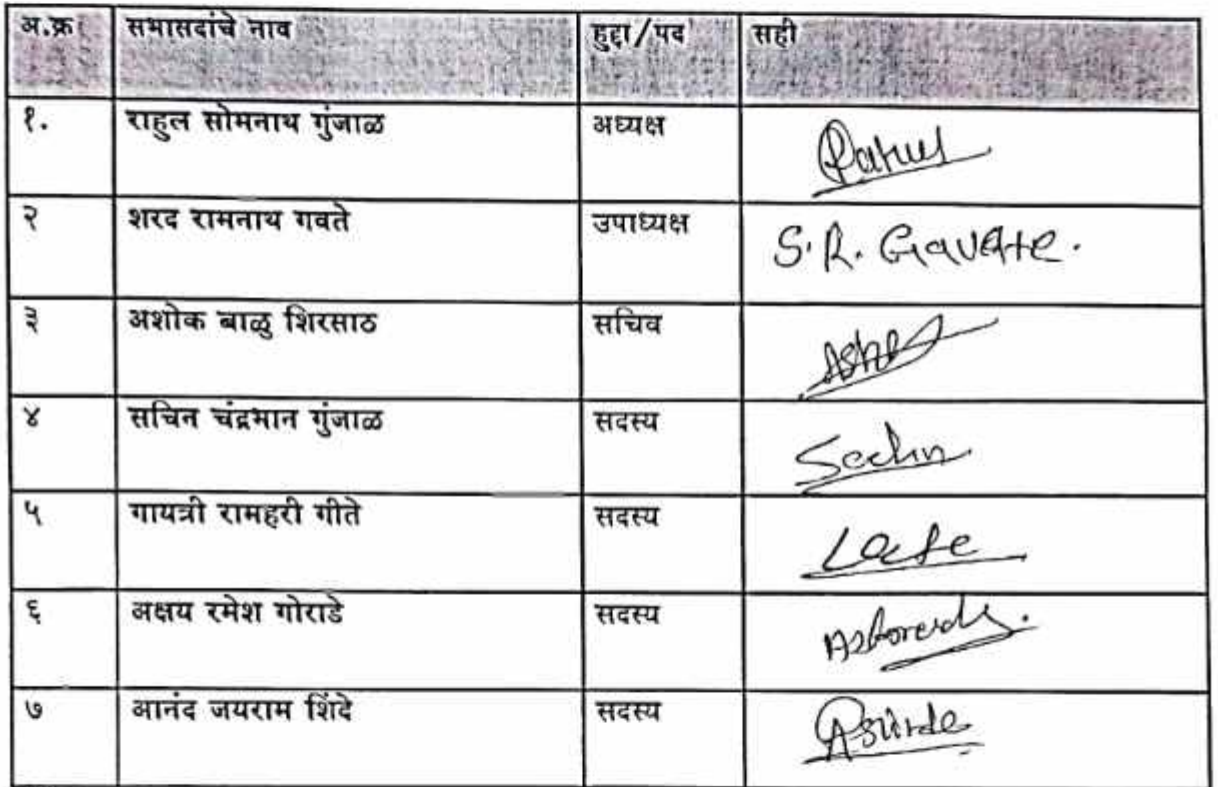 अ.क्र सभासदांचे नाव हुद्दा/पद सही
१. राहुल सोमनाथ गुंजाळ अध्यक्ष Rahul
२ शरद रामनाथ गवते उपाध्यक्ष S.R. Gavate.
३ अशोक बाळु शिरसाठ सचिव
४ सचिन चंद्रभान गुंजाळ सदस्य Sachin
५ गायत्री रामहरी गीते सदस्य
६ अक्षय रमेश गोराडे सदस्य
७ आनंद जयराम शिंदे सदस्य